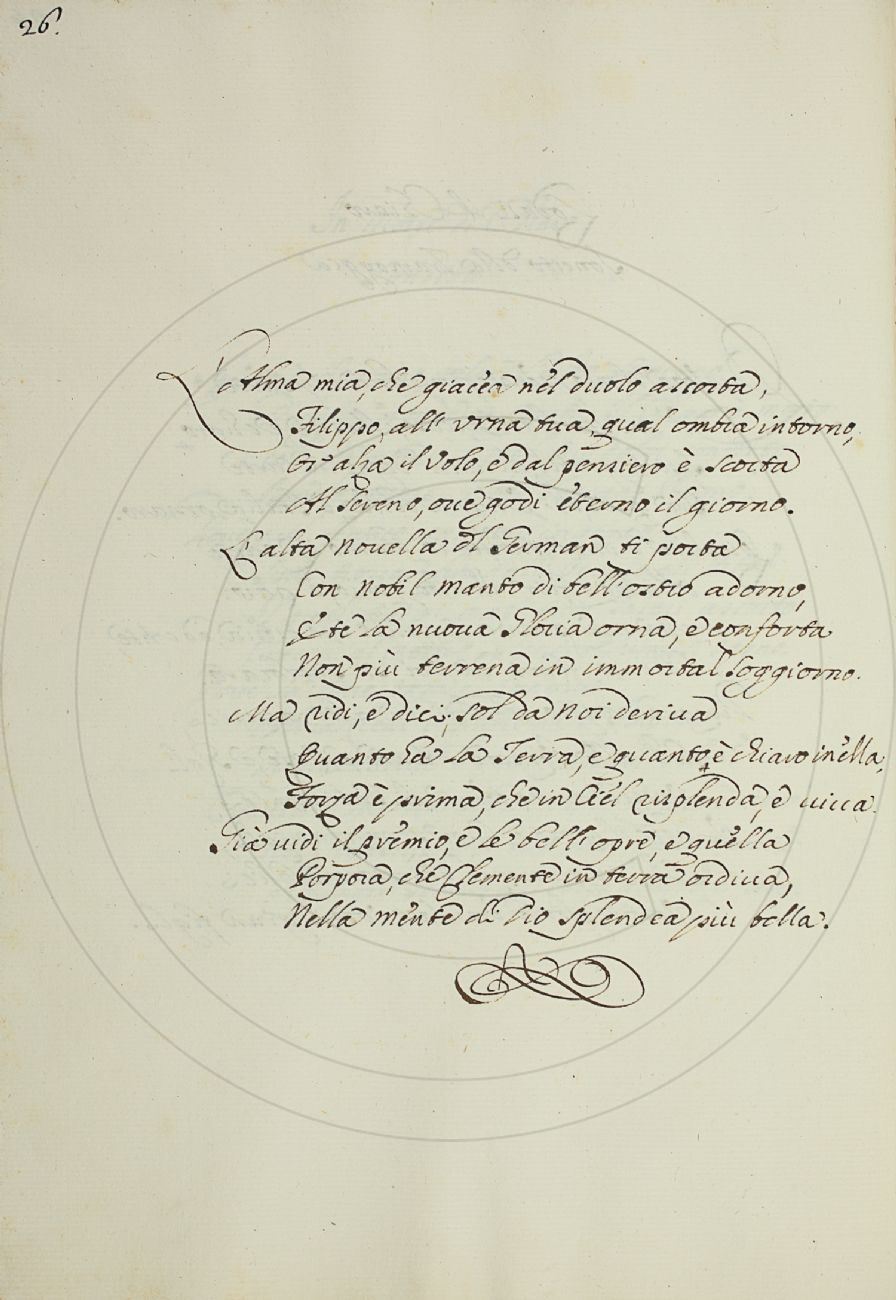 26.
L'Alma mia, che giacea nel duolo assorta,
Filippo, all' Vrna tua, qual ombra intorno,
Or' alza il Volo, e dal pensiero è scorta
Al Sereno, oue godi eterno il giorno.
L'alta nouella del German ti porta
Con nobil manto di bell'ostro adorno,
E te la nuoua Gloria orna, e conforta
Non più terrena in immortal Soggiorno.
Ma ridi, e dici, sol da noi deriua
Quanto ha la Terra, e quanto è chiaro in ella,
Forza è prima, che in Ciel risplenda, e viua.
Già vidi il premio, e le bell' opre, e quella
Porpora, che Clemente in terra ordiua,
Nella mente di Dio splendea più bella.